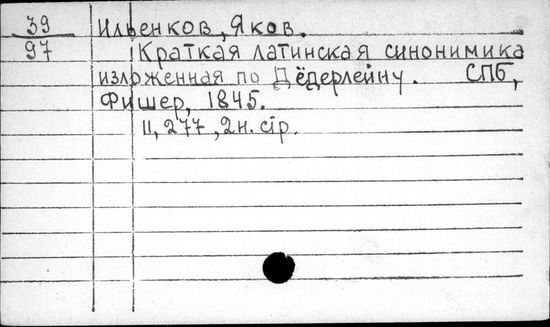 39 Ильенков, Яков.
97 Краткая латинская синонимика
изложенная по Дёдерлейну. СПб,
Фишер, 1845.
II, 277, 2 н. стр.